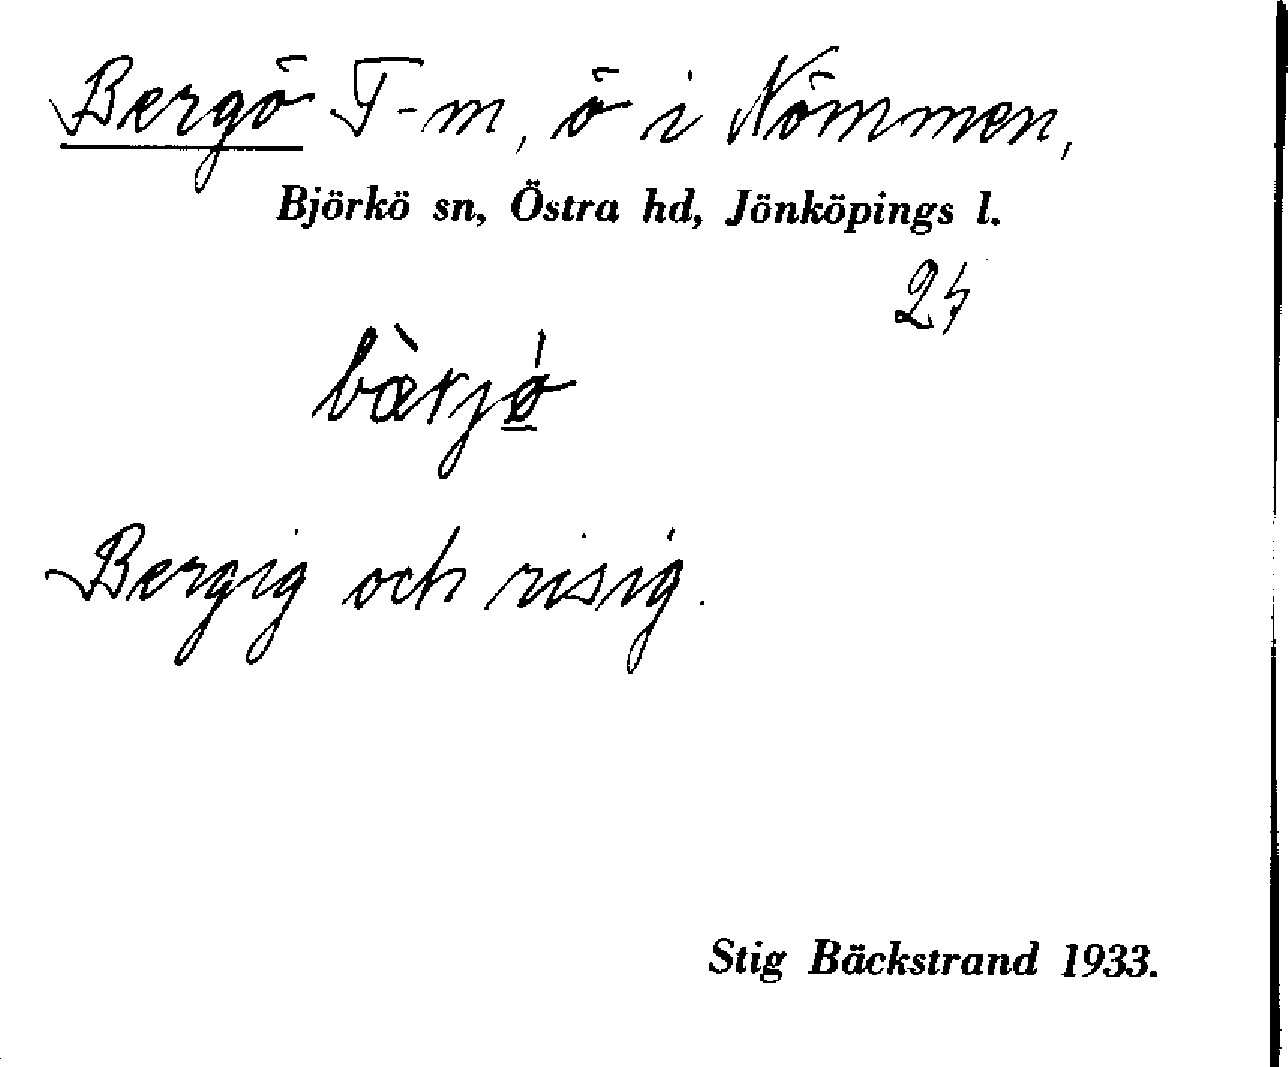 Bergö T-m, ö i Nömmen,
Björkö sn, Östra hd, Jönköpings l.
24
bàrjǿ
Bergig och risig.
Stig Bäckstrand 1933.